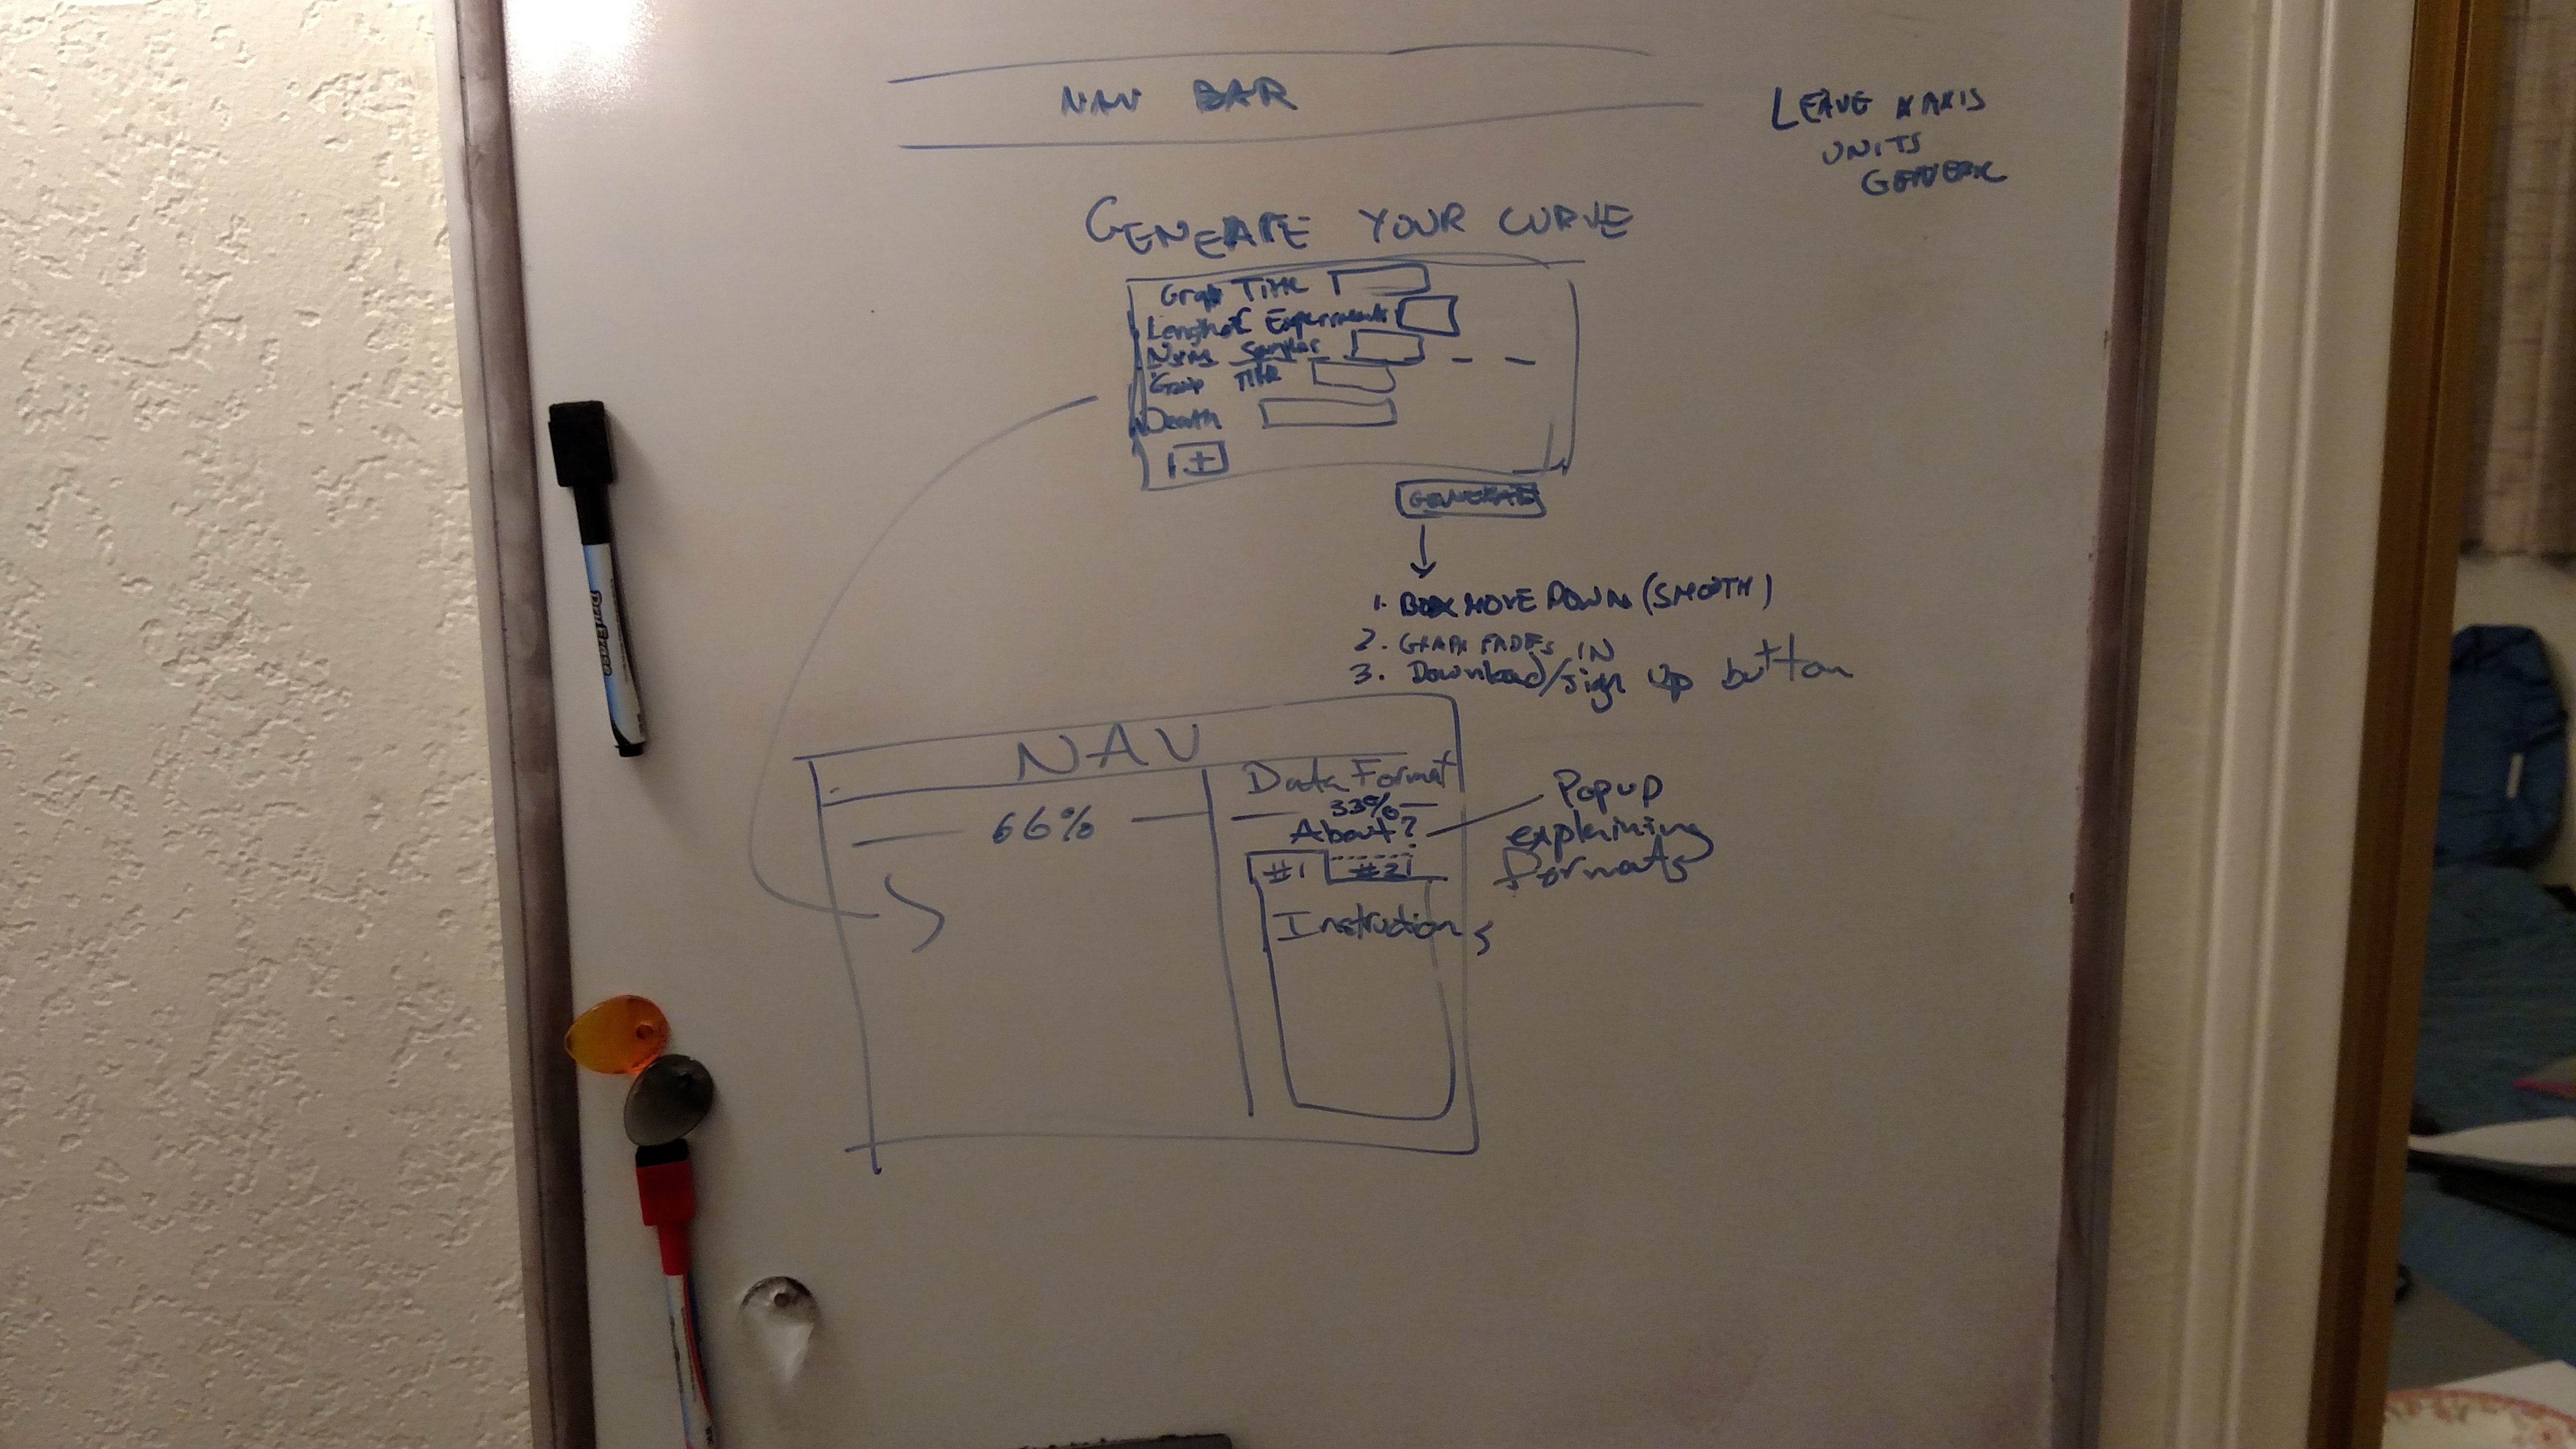 NAV BAR
LEAVE X AXIS
UNITS
GENERIC
GENERATE YOUR CURVE
Graph Title
Length of Experiment
Num Samples
Group Title
Death
+
GENERATE
1. BOX MOVE DOWN (SMOOTH)
2. GRAPH FADES IN
3. Download/sign up button
NAV
Data Format
66%
33%
About?
Popup
explaining
formats
#1 #2
Instructions
DryErase